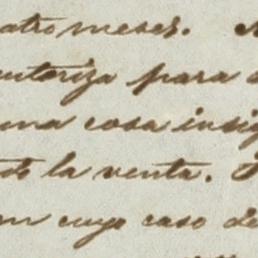 atro meses.
autoriza para
una cosa insig
do la venta.
en cuyo caso de